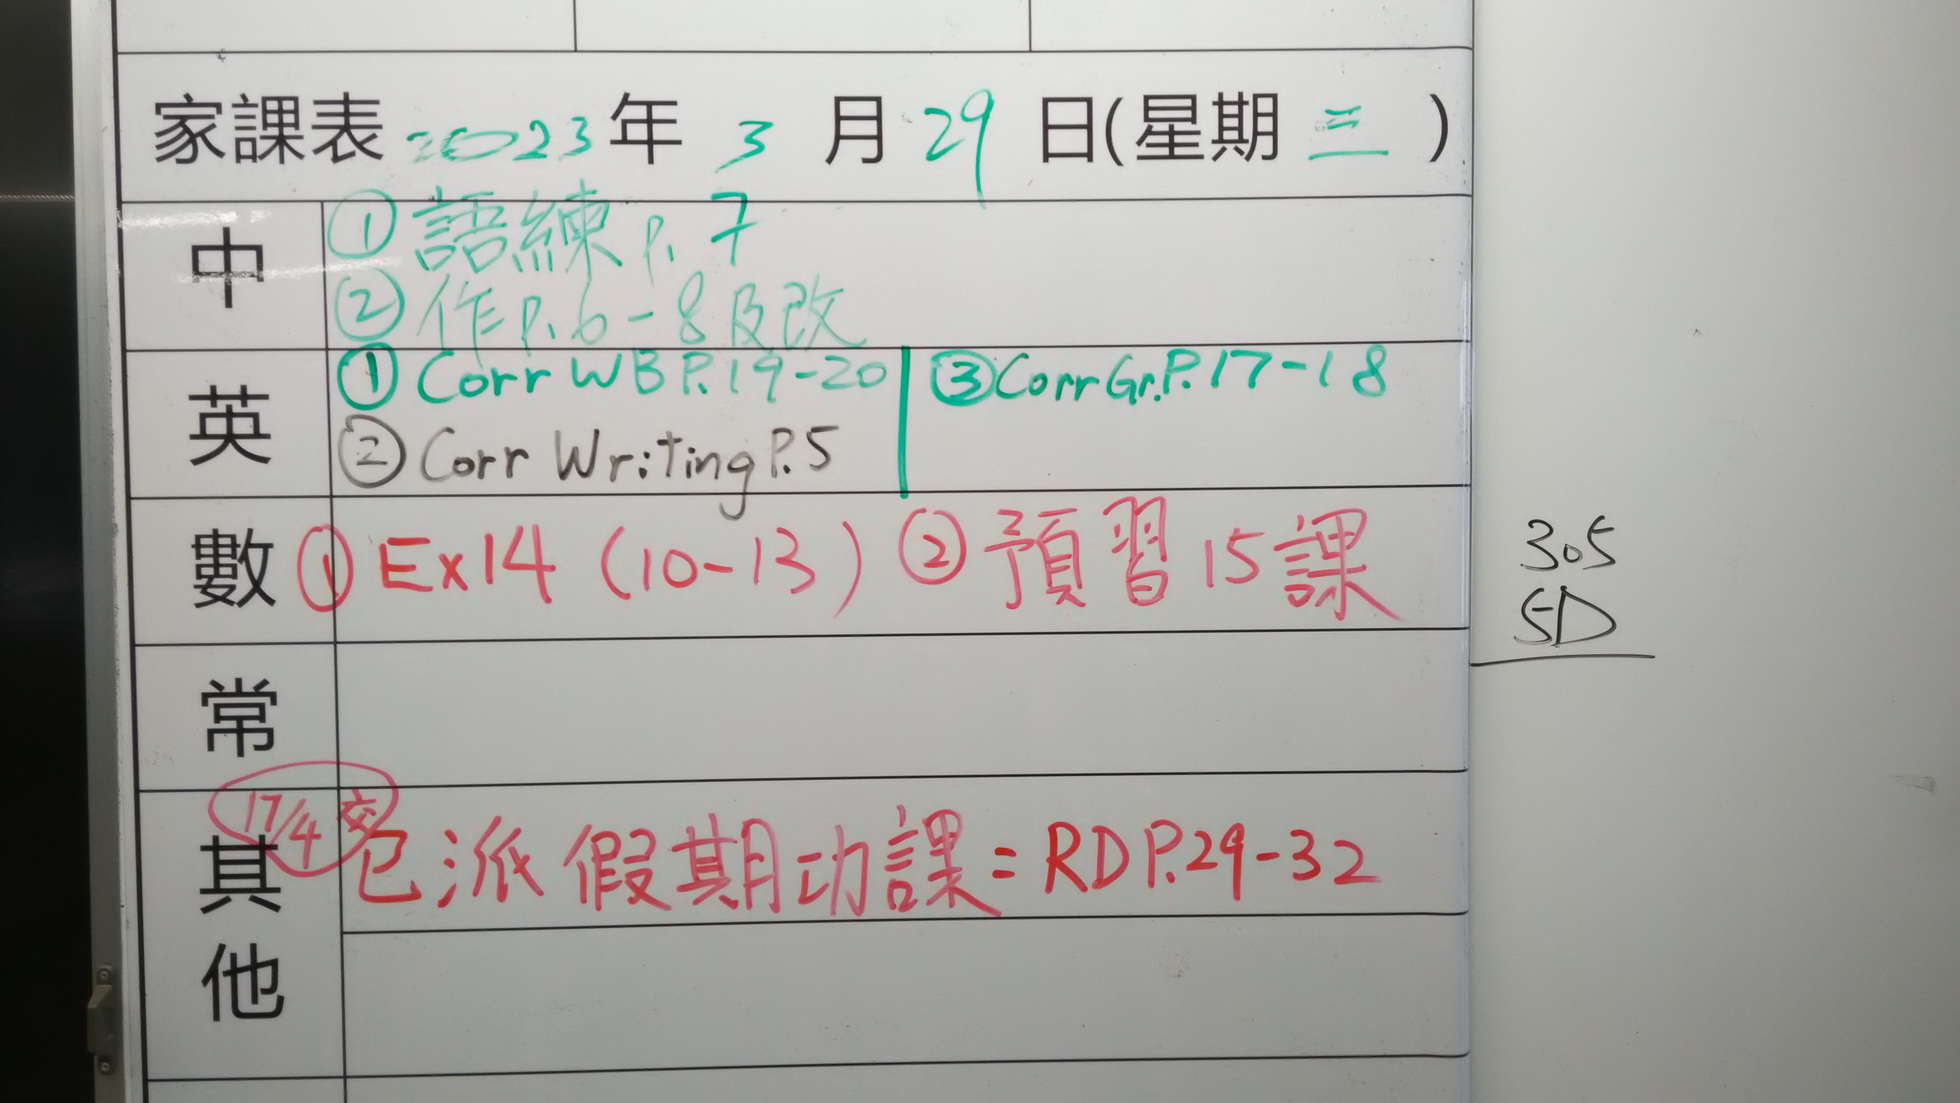 家課表 2023年 3 月 29 日(星期 三 )
中
① 語練 P. 7
② 作 P. 6-8 及改
英
① Corr WB P.19-20
② Corr Writing P.5
③ Corr Gr. P.17-18
數
① Ex14 (10-13) ② 預習 15 課
常
其他
17/4 交
已派假期功課 = RD P.29-32
305
5D